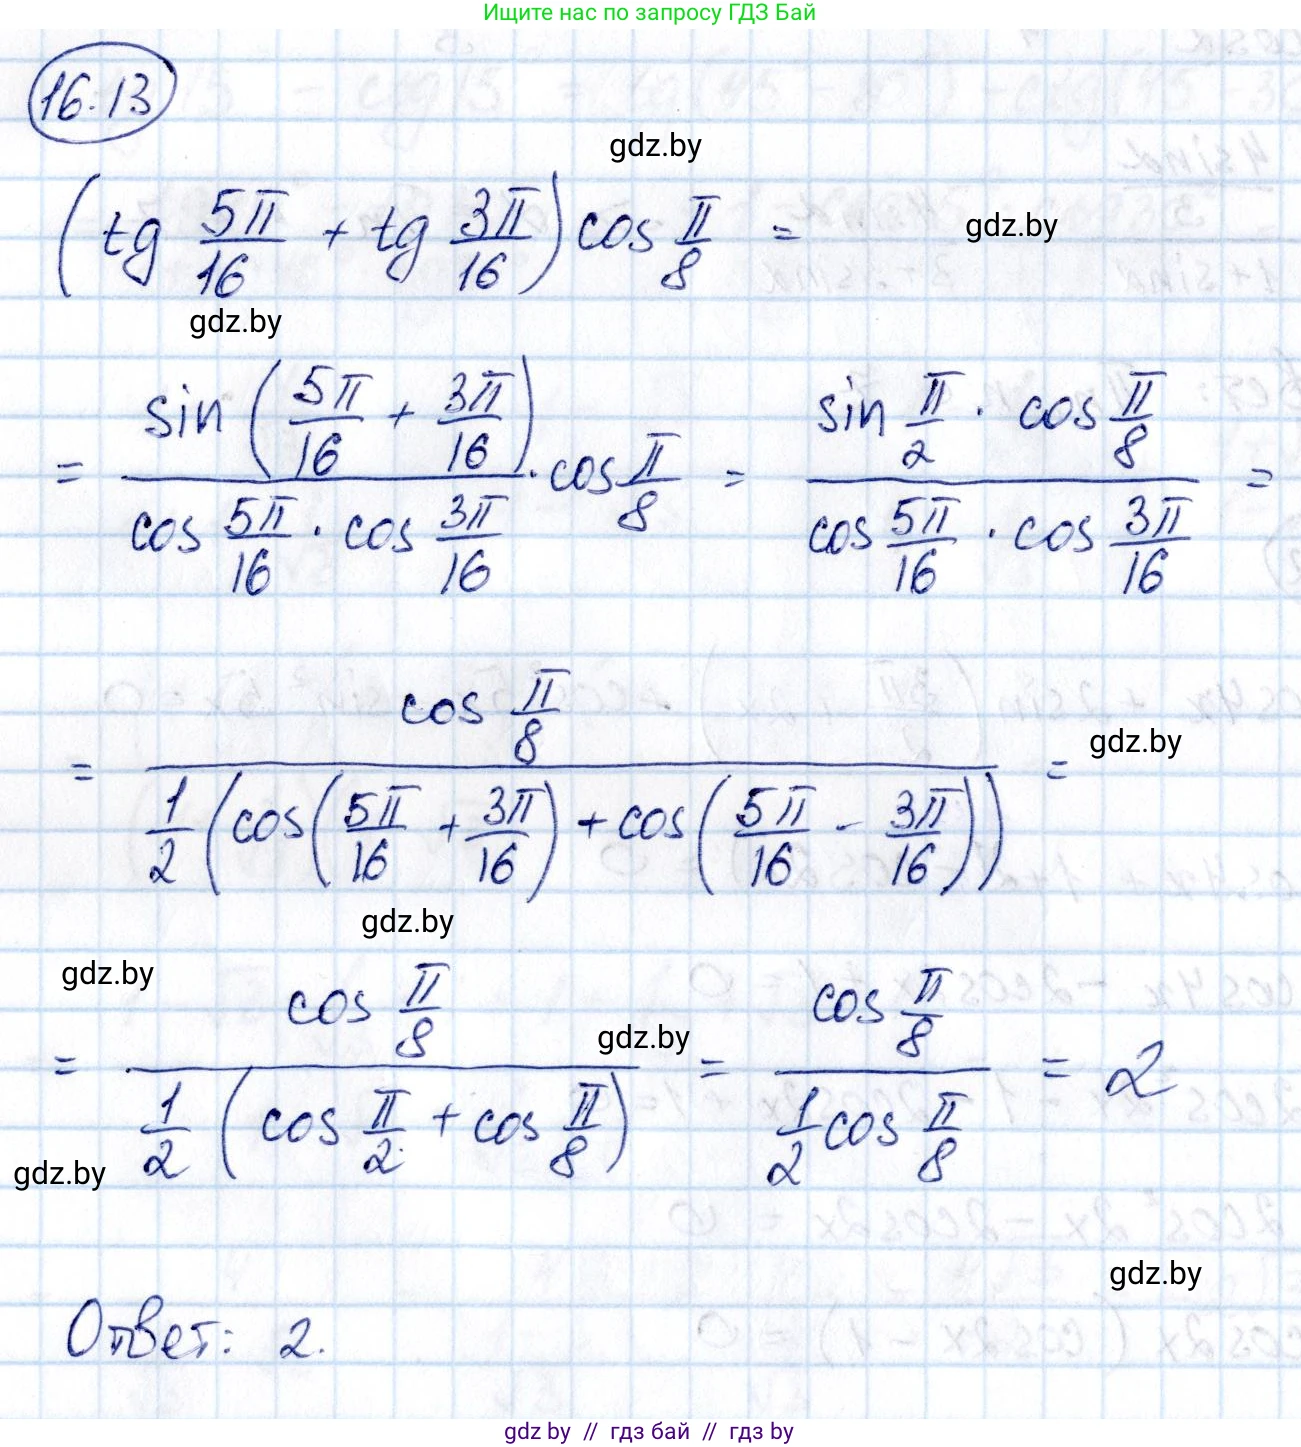 Ищите нас по запросу ГДЗ Бай
16.13
gdz.by
(tg 5π/16 + tg 3π/16) cos π/8 =
gdz.by
gdz.by
= sin(5π/16 + 3π/16) / (cos 5π/16 · cos 3π/16) · cos π/8 = (sin π/2 · cos π/8) / (cos 5π/16 · cos 3π/16) =
= cos π/8 / (1/2 (cos(5π/16 + 3π/16) + cos(5π/16 - 3π/16))) =
gdz.by
gdz.by
gdz.by
= cos π/8 / (1/2 (cos π/2 + cos π/8)) = cos π/8 / (1/2 cos π/8) = 2
gdz.by
gdz.by
gdz.by
Ответ: 2.
gdz.by // гдз бай // гдз by